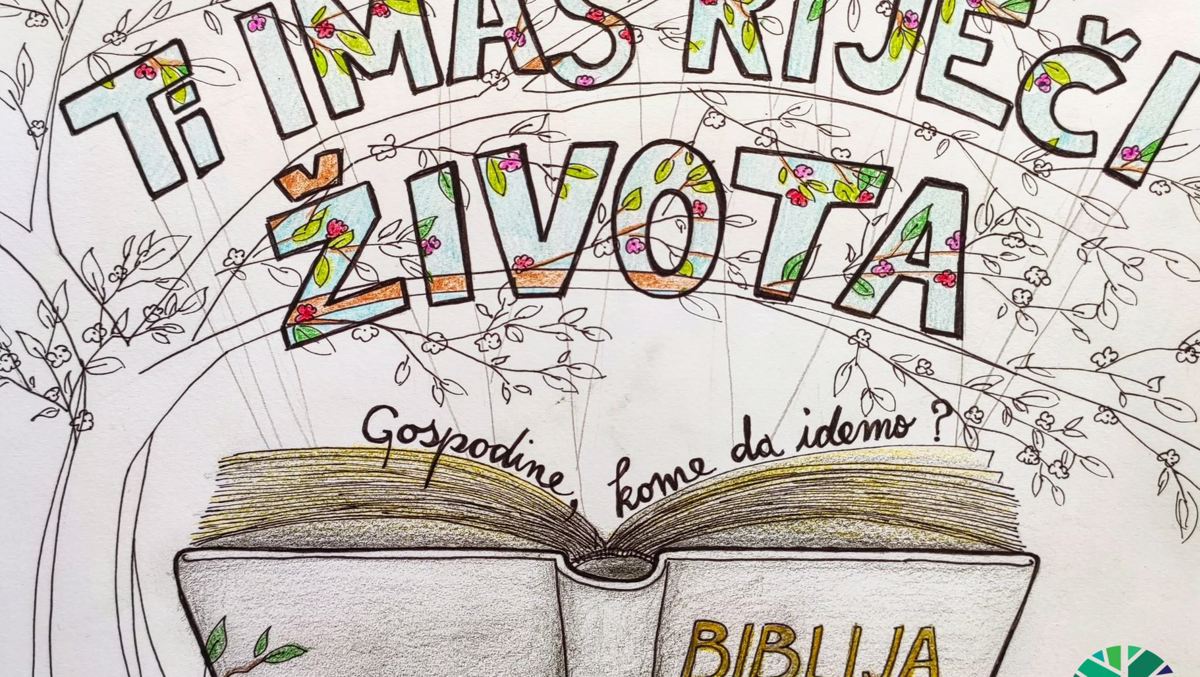 Ti IMAŠ RIJEČI
ŽIVOTA
Gospodine, kome da idemo?
BIBLIJA